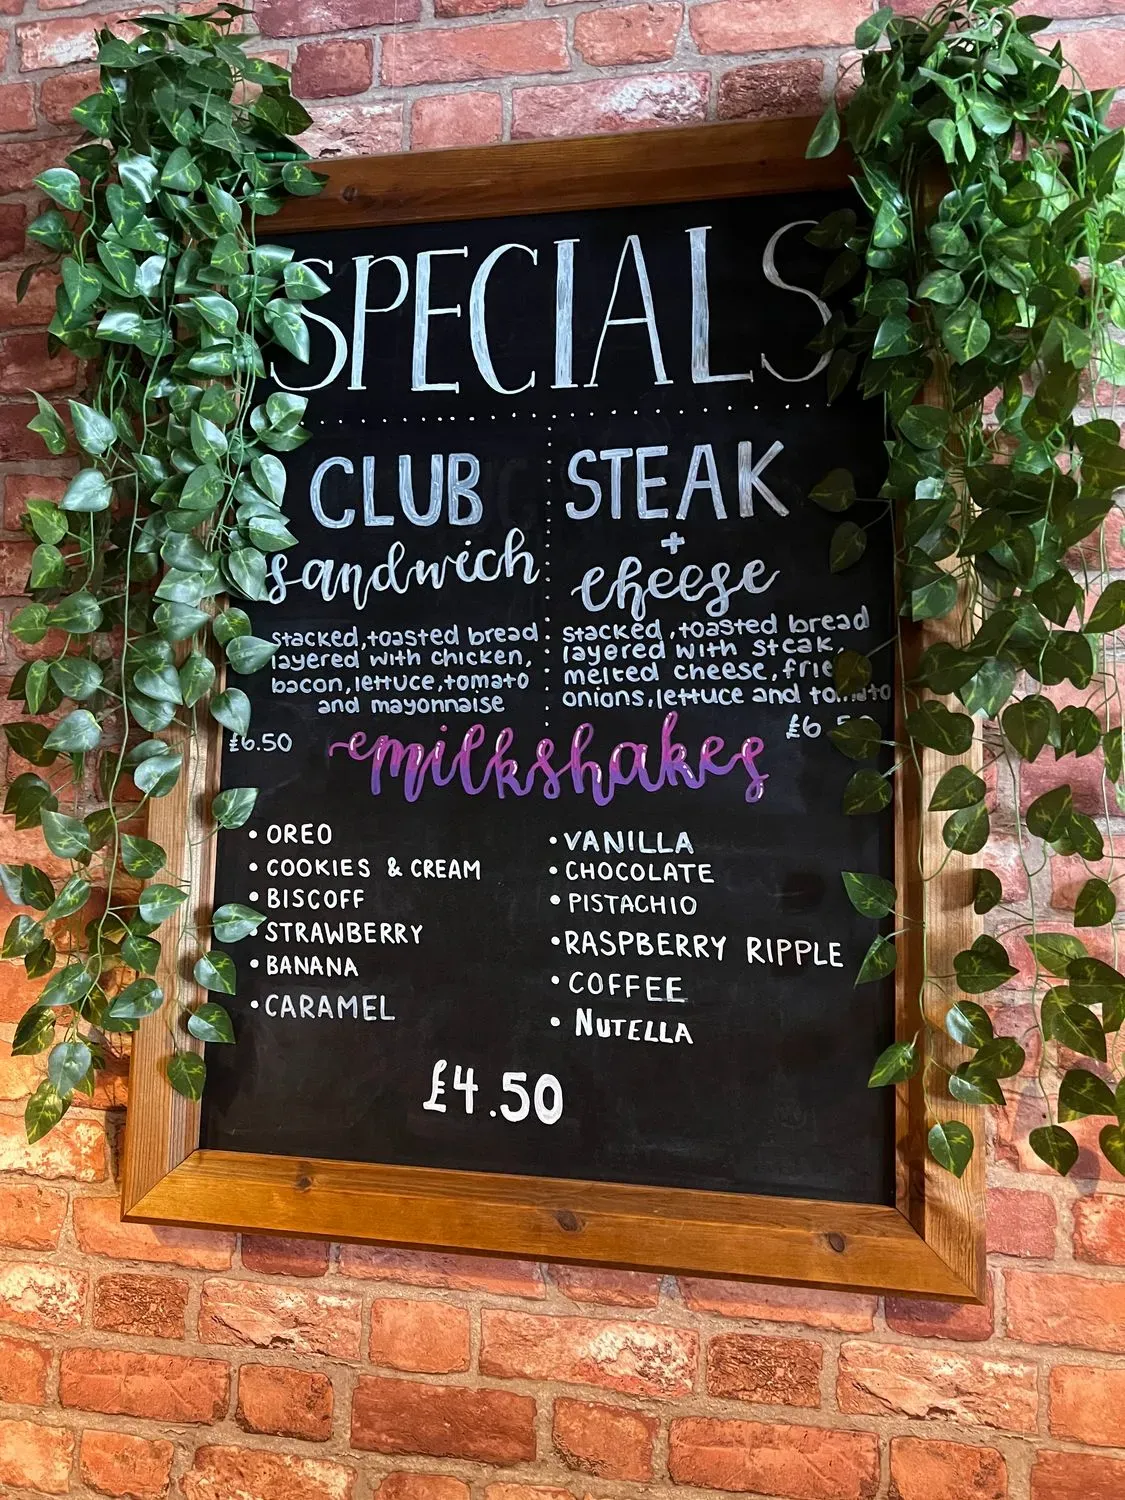 SPECIALS
CLUB
sandwich
stacked, toasted bread
layered with chicken,
bacon, lettuce, tomato
and mayonnaise
£6.50
STEAK
+
cheese
stacked, toasted bread
layered with steak,
melted cheese,
onions, lettuce and
milkshakes
• OREO
• COOKIES & CREAM
• BISCOFF
• STRAWBERRY
• BANANA
• CARAMEL
• VANILLA
• CHOCOLATE
• PISTACHIO
• RASPBERRY RIPPLE
• COFFEE
• NUTELLA
£4.50